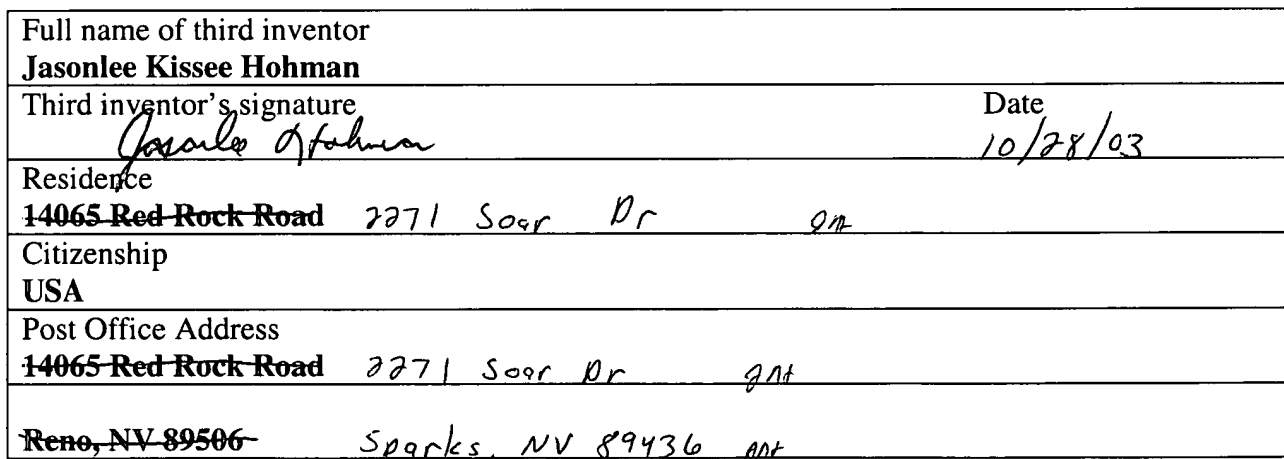 Full name of third inventor
Jasonlee Kissee Hohman
Third inventor's signature Date
Jasonlee Hohman 10/28/03
Residence
14065 Red Rock Road 2271 Soar Dr
Citizenship
USA
Post Office Address
14065 Red Rock Road 2271 Soar Dr
Reno, NV 89506 Sparks, NV 89436